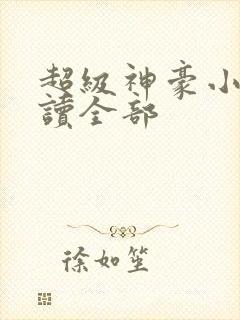 超級神豪小
讀全部
徐如笙